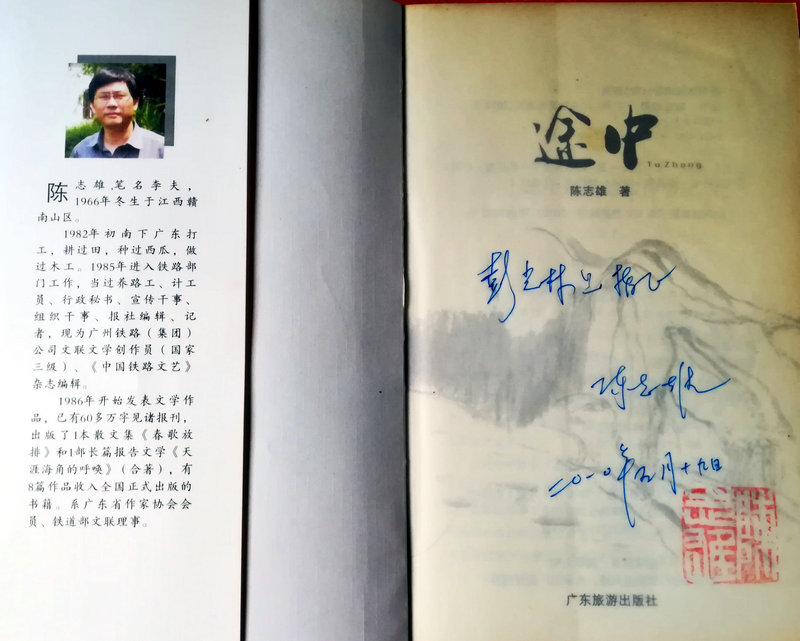 陈志雄,笔名李夫,
1966年冬生于江西赣
南山区。
1982年初南下广东打
工,耕过田,种过西瓜,做
过木工。1985年进入铁路部
门工作,当过养路工、计工
员、行政秘书、宣传干事、
组织干事、报社编辑、记
者,现为广州铁路(集团)
公司文联文学创作员(国家
三级)、《中国铁路文艺》
杂志编辑。
1986年开始发表文学作
品,已有60多万字见诸报刊,
出版了1本散文集《春歌放
排》和1部长篇报告文学《天
涯海角的呼唤》(合著),有
8篇作品收入全国正式出版的
书籍。系广东省作家协会会
员、铁道部文联理事。
途中
Tu Zhong
陈志雄 著
彭 林兄指正
陈志雄
二〇一〇年 月十九日
广东旅游出版社